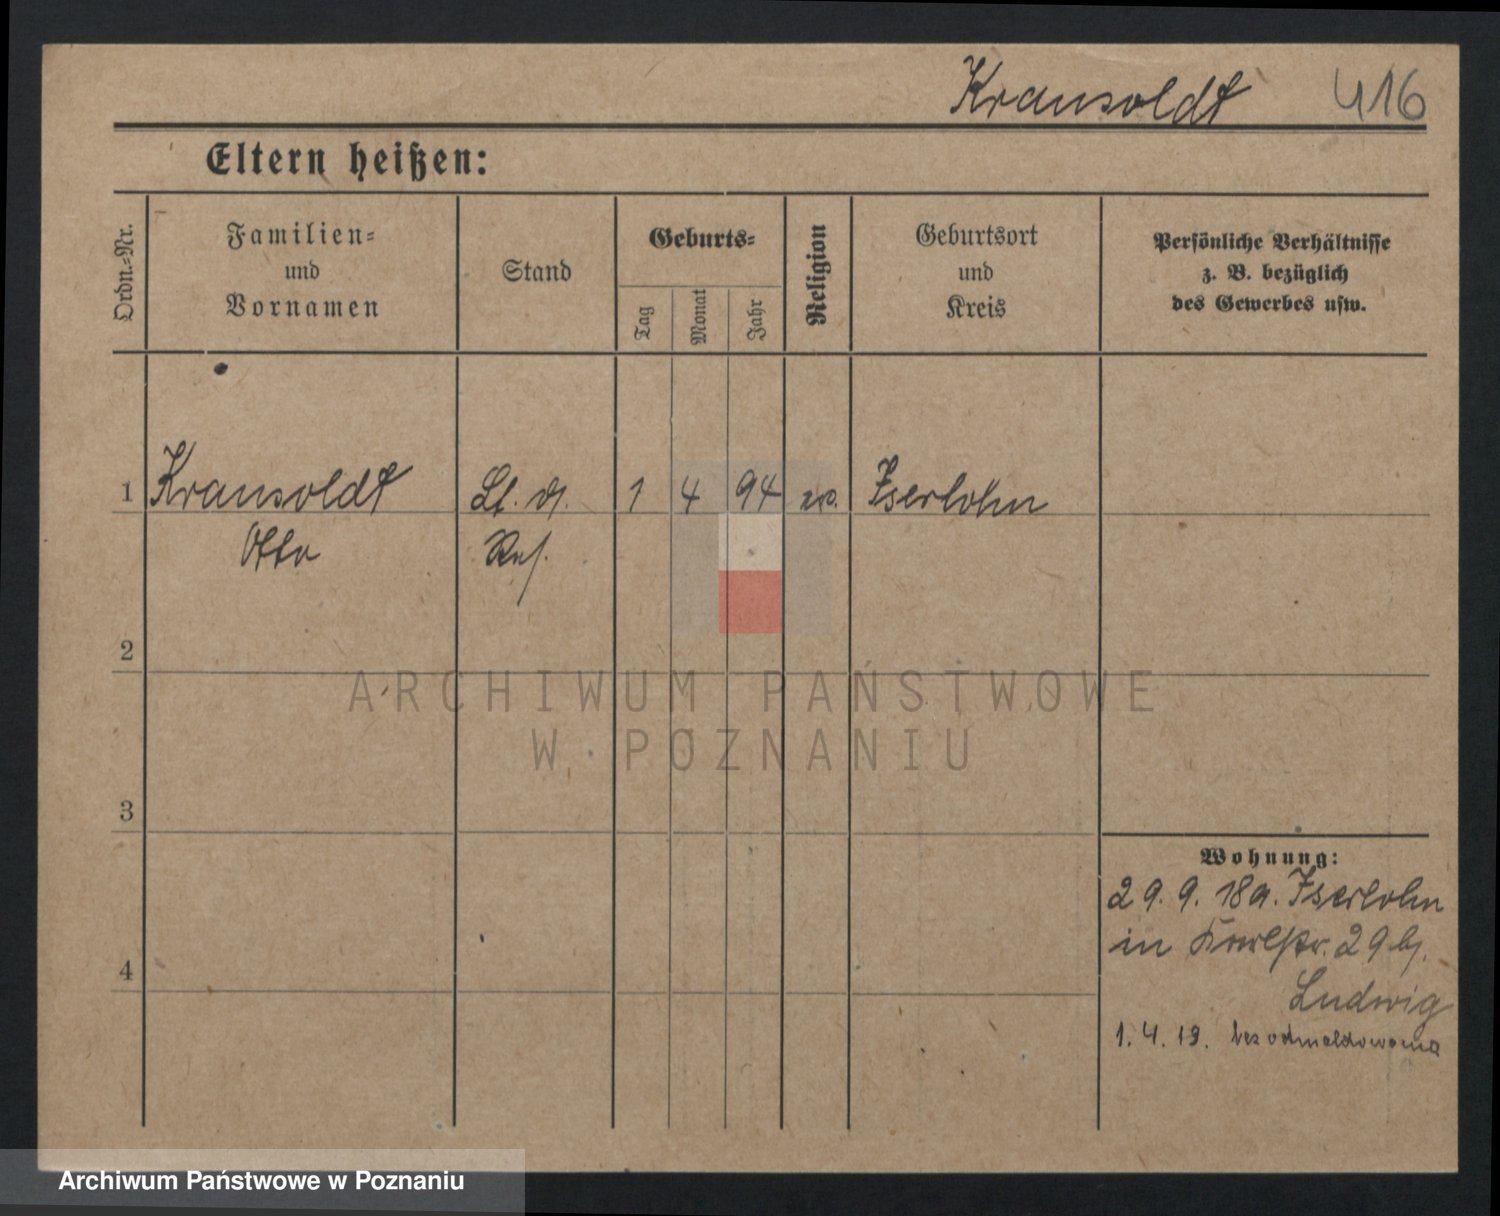 Kransoldt 416
Eltern heißen:
Ordn.=Nr.
Familien=
und
Vornamen
Stand
Geburts=
Tag
Monat
Jahr
Religion
Geburtsort
und
Kreis
Persönliche Verhältnisse
z. B. bezüglich
des Gewerbes usw.
1 Kransoldt Lt. d. 1 4 94 ev. Iserlohn
Otto Res.
2
3
4
Wohnung:
29. 9. 18 a. Iserlohn
in 29 b/.
Ludwig
1. 4. 19. bez odmeldowania
ARCHIWUM PAŃSTWOWE
W POZNANIU
Archiwum Państwowe w Poznaniu